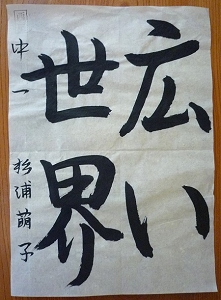 広い
世界
中一 杉浦萌子